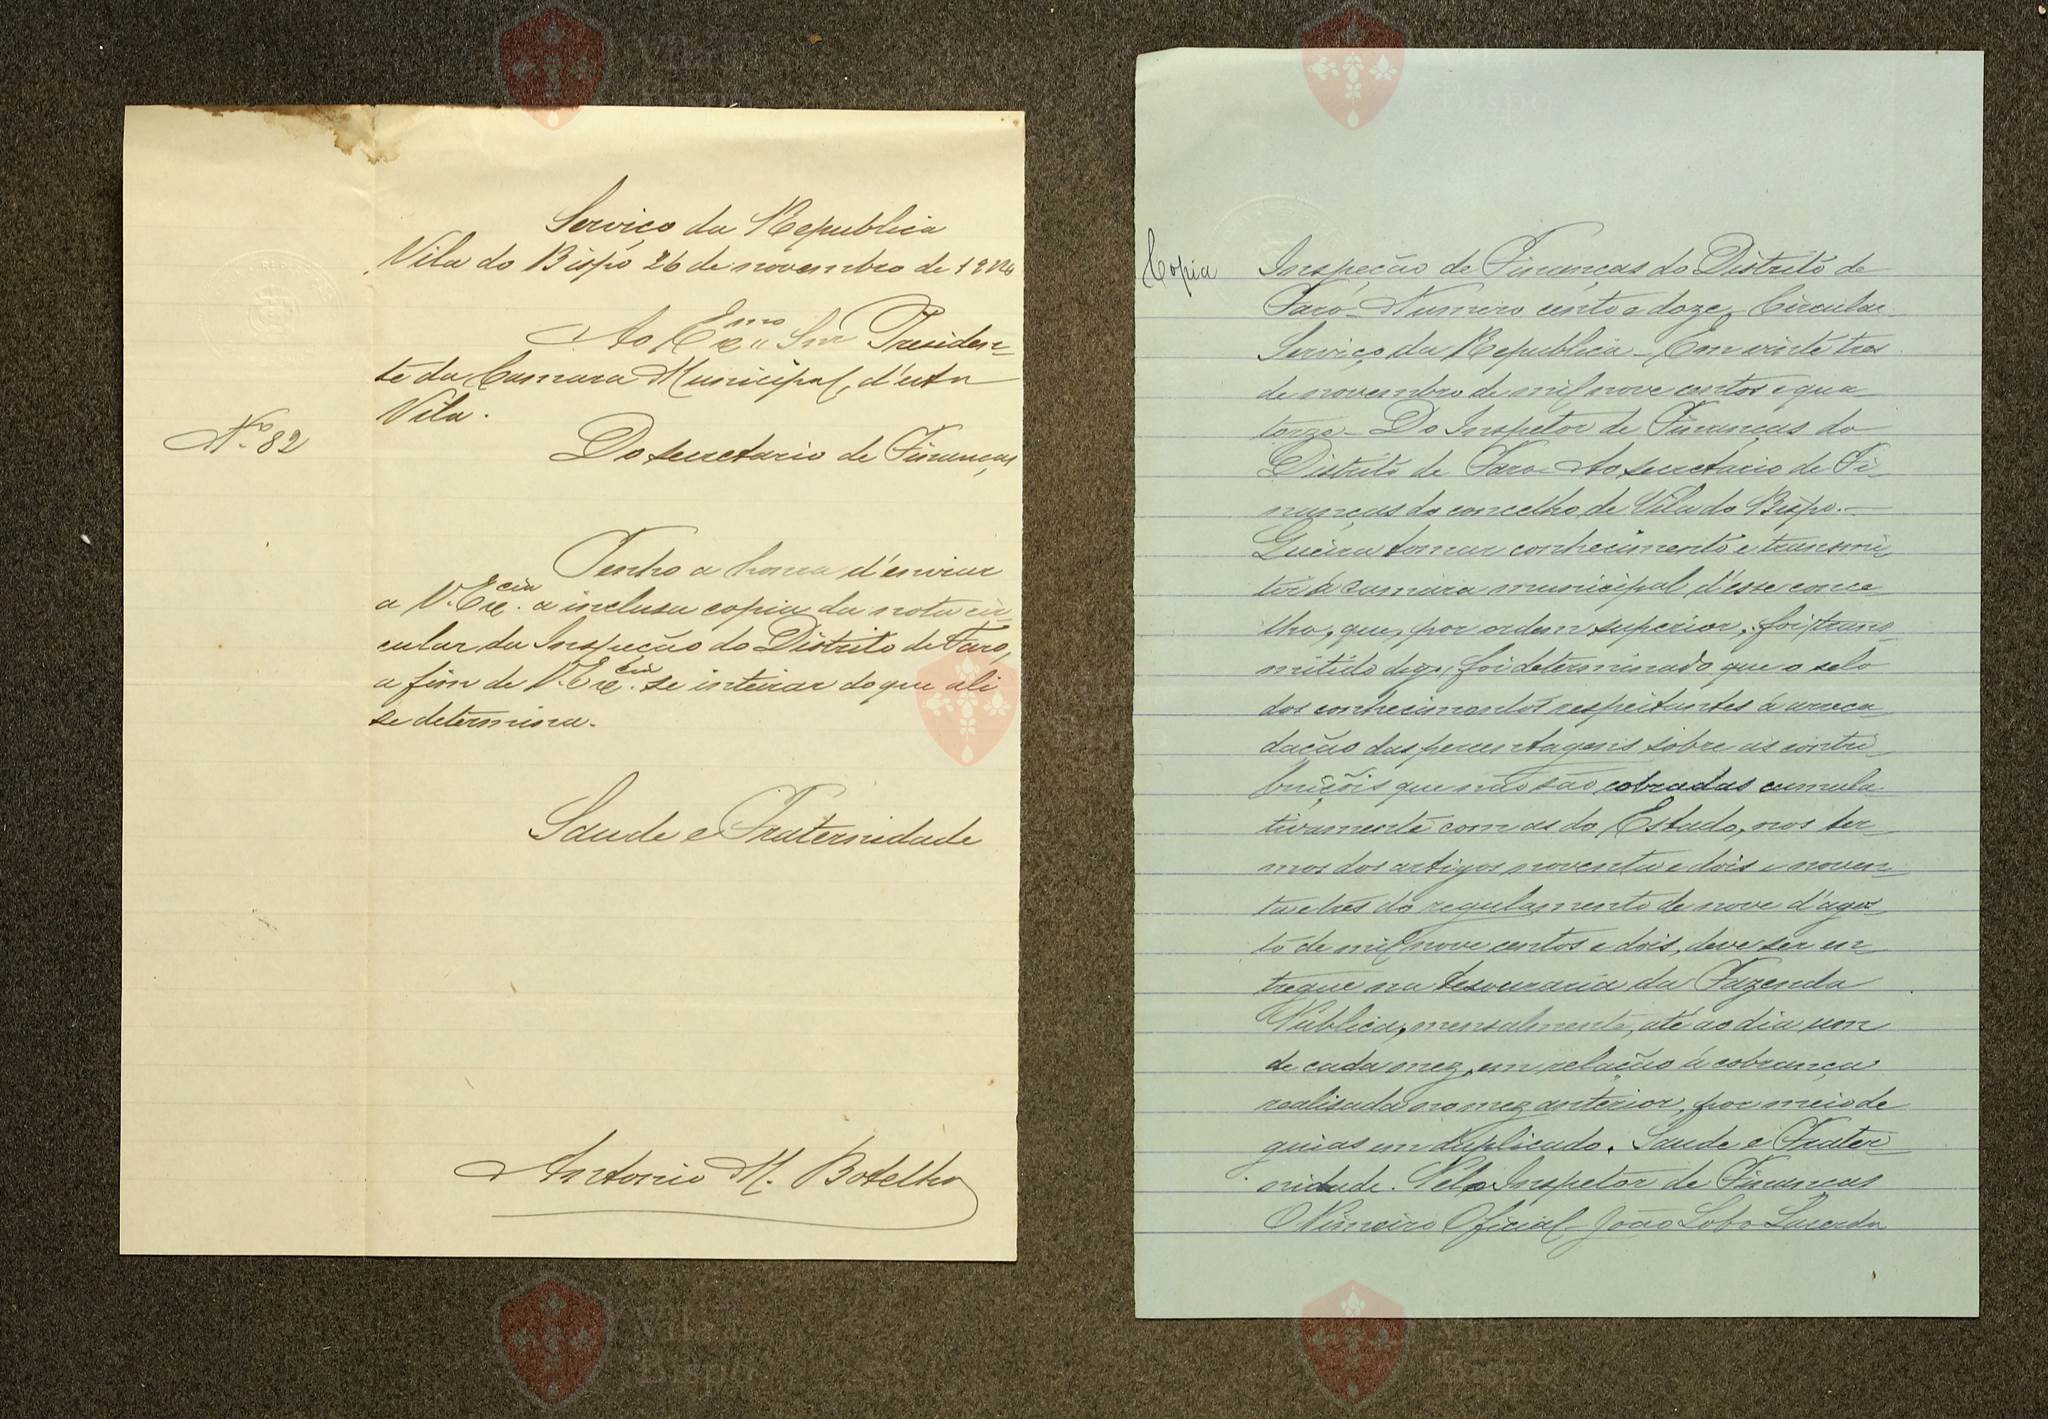 Serviço da Republica
Vila do Bispo 26 de novembro de 1914
Ao Exmo Snr Presiden-
te da Camara Municipal, d'esta
Vila.
Nº 82
Do secretario de Finanças
Tenho a honra d'enviar
a V. Excia. a inclusa copia da nota cir-
cular da Inspeção do Distrito de Faro,
a fim de V. Excia. se inteirar do que ali
se determina.
Saude e Fraternidade
Antonio M. Botelho
Copia
Inspeção de Finanças do Distrito de
Faro - Numero cento e doze, Circular -
Serviço da Republica - Em vinte tres
de novembro de mil nove centos e qua
torze - Do Inspetor de Finanças do
Distrito de Faro Ao secretario de Fi-
nanças do concelho de Vila do Bispo. -
Queira tomar conhecimento e transmi-
tir á camara municipal d'esse conce
lho, que, por ordem superior, foi trans
mitido digo, foi determinado, que o selo
dos conhecimentos respeitantes á arreca
dação das percentagens sobre as contri-
buições que não são cobradas cumula-
tivamente com as do Estado, nos ter-
mos dos artigos noventa e dois e noven-
ta e três do regulamento de nove d'agos-
to de mil nove centos e dois, deve ser en
tregue na tesouraria da Fazenda
Publica, mensalmente, até ao dia um
de cada mez, em relação á cobrança
realisada no mez anterior, por meio de
guias em duplicado. Saude e Frater-
nidade. Pelo Inspetor de Finanças
O Primeiro Oficial - João Lobo Lacerda
Vila do
Bispo